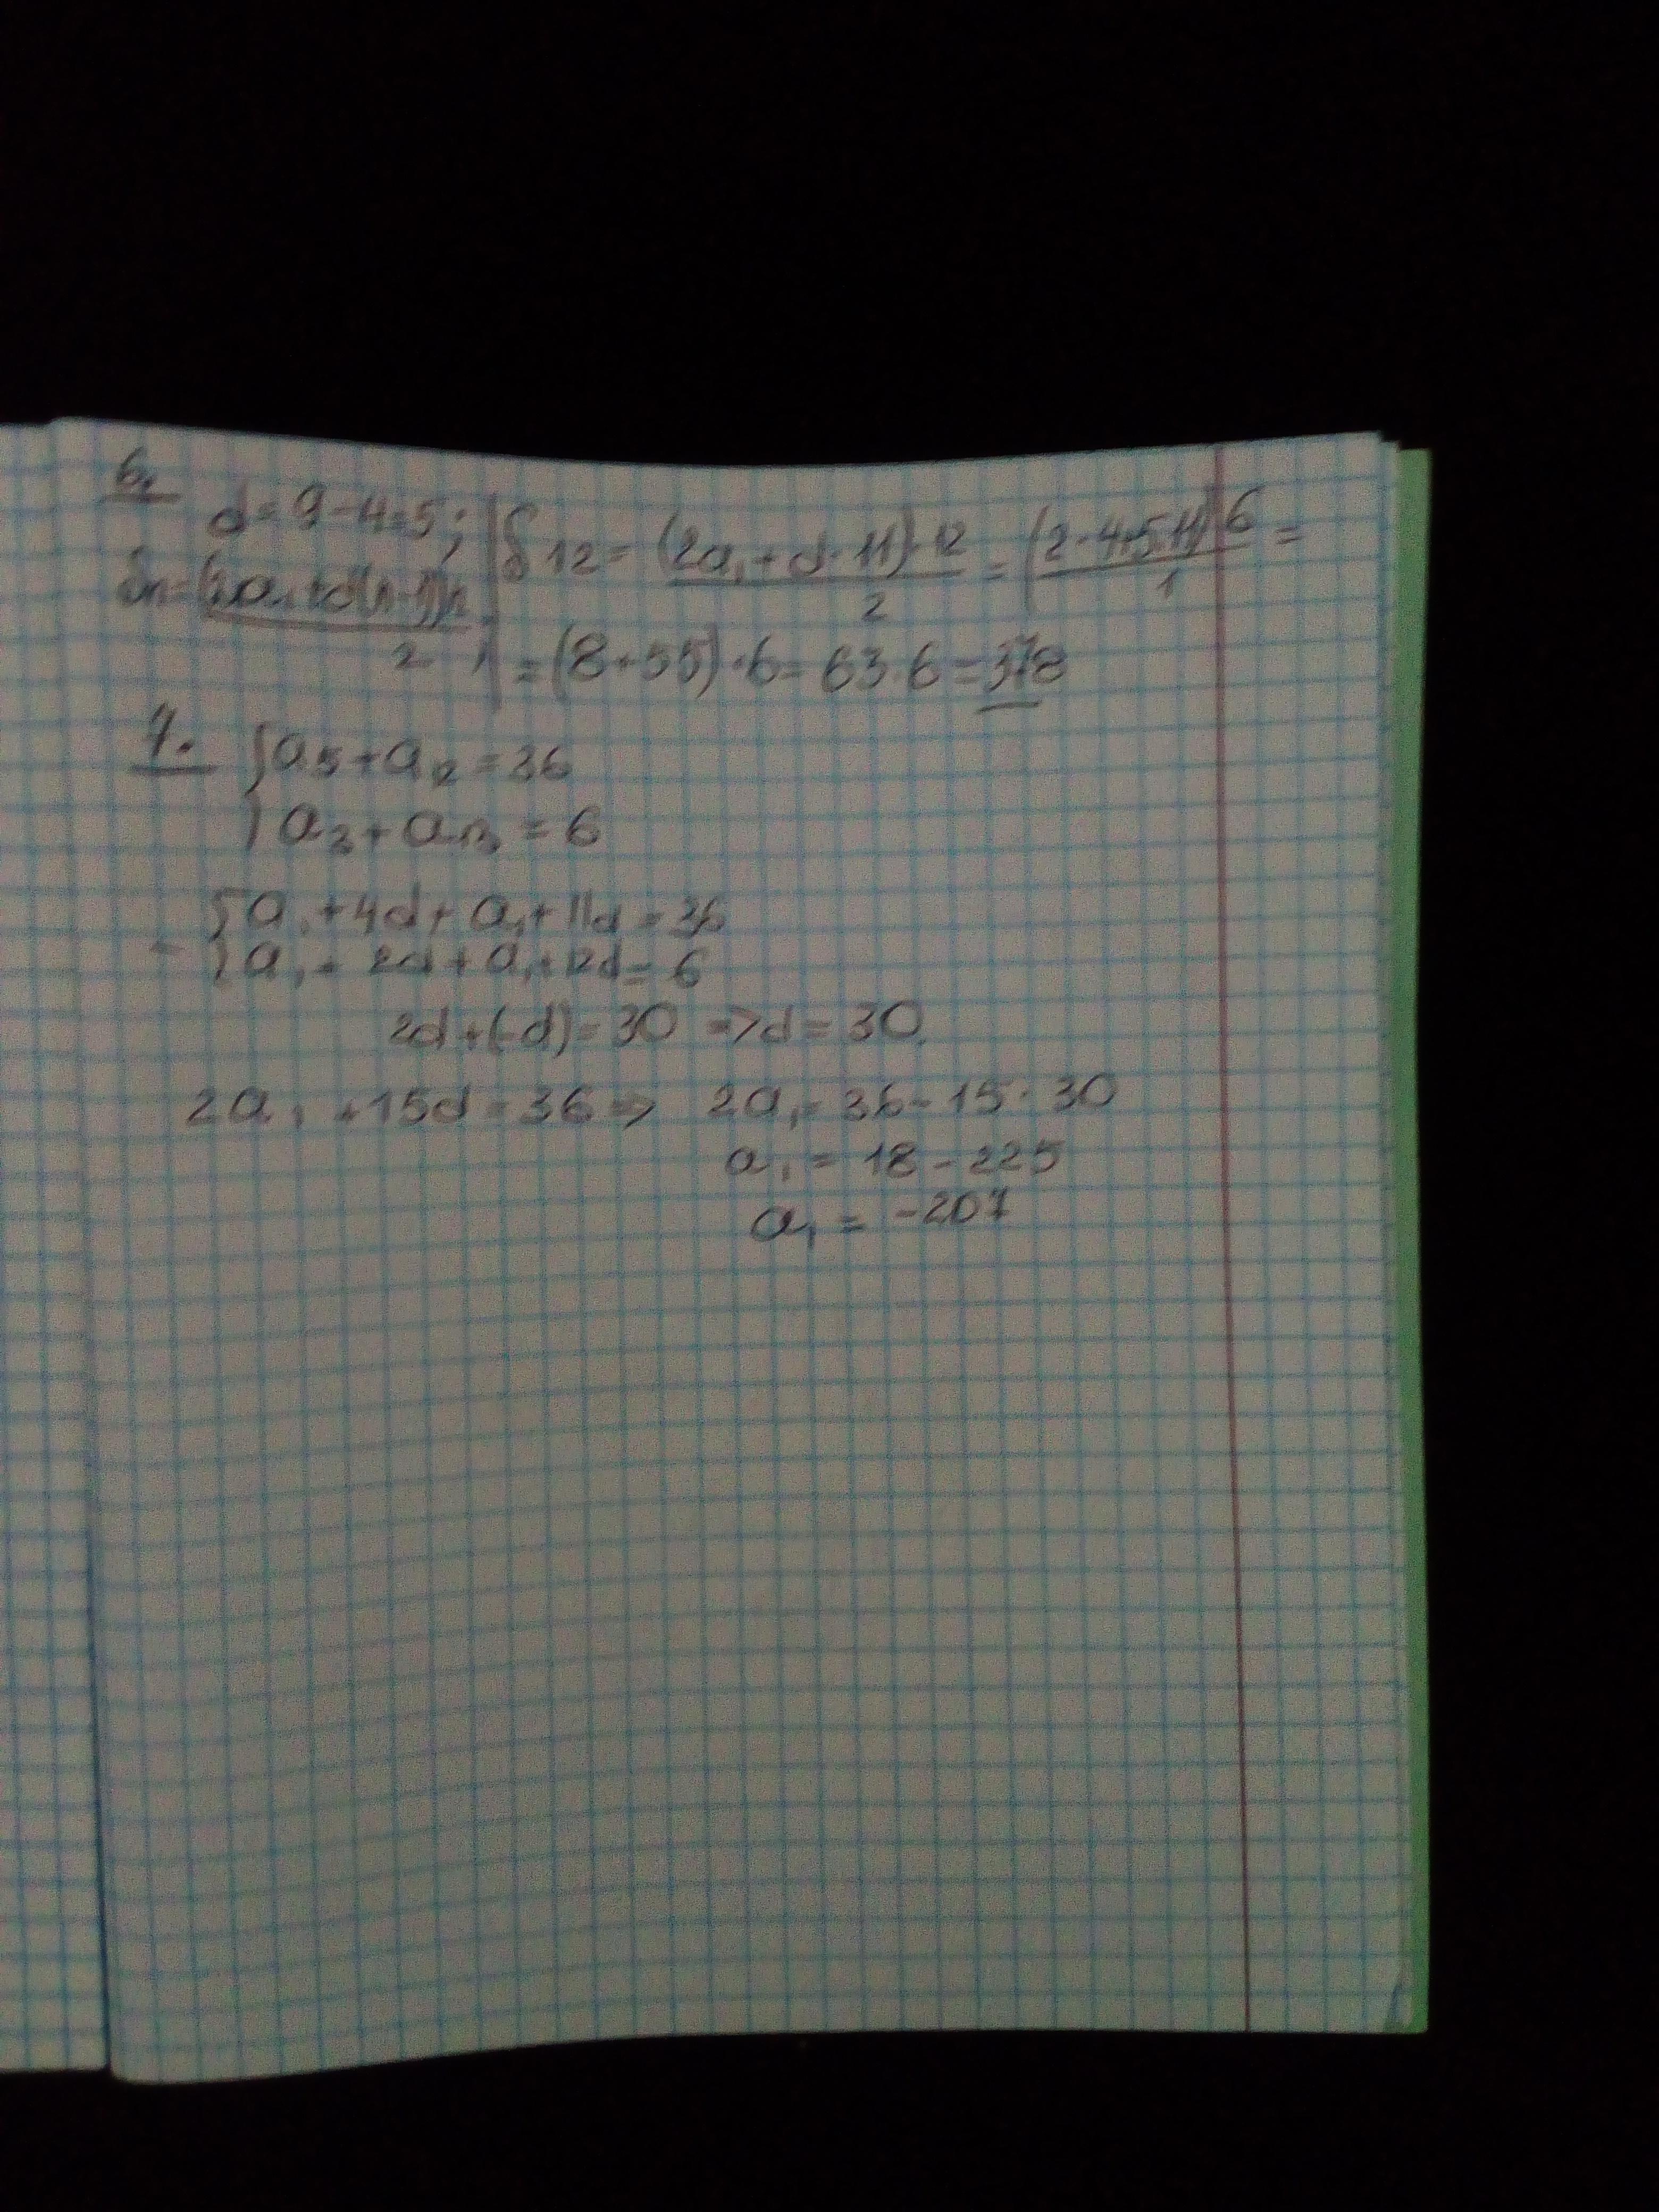 6.
d = 9 - 4 = 5;
Sn = (2a₁ + d(n-1))n / 2
S₁₂ = (2a₁ + d·11)·12 / 2 = (2·4+5·11)·6 / 1 =
= (8+55)·6 = 63·6 = 378
7.
{a₅ + a₁₂ = 36
a₃ + a₁₃ = 6
- {a₁ + 4d + a₁ + 11d = 36
a₁ + 2d + a₁ + 12d = 6
2d + (-d) = 30 => d = 30.
2a₁ + 15d = 36 => 2a₁ = 36 - 15·30
a₁ = 18 - 225
a₁ = -207